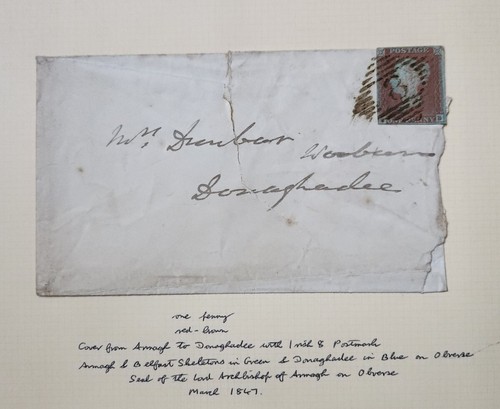 POSTAGE
Mrs Dunbar
Woburn
Donaghadee
one penny
red-brown
Cover from Armagh to Donaghadee with Irish 8 Postmark
Armagh & Belfast Skeletons in Green & Donaghadee in Blue on Obverse
Seal of the Lord Archbishop of Armagh on Obverse
March 1847.